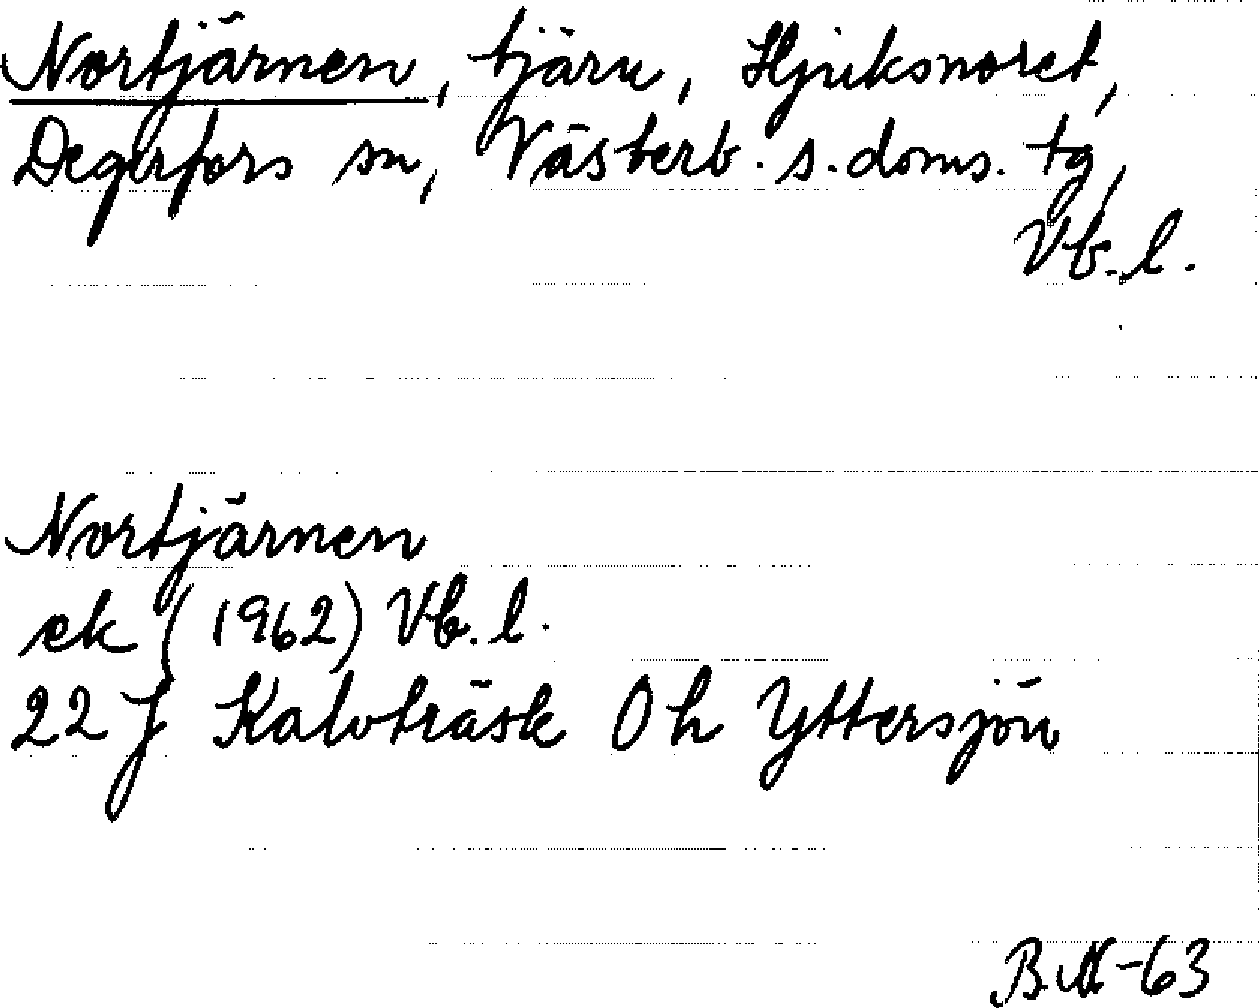 Nortjärnen, tjärn, Hjuksnoret,
Degerfors sn, Västerb. s. doms. tg,
Vb. l.
Nortjärnen
ek (1962) Vb. l.
22 J Kalvträsk 0 h Yttersjön
B.N-63